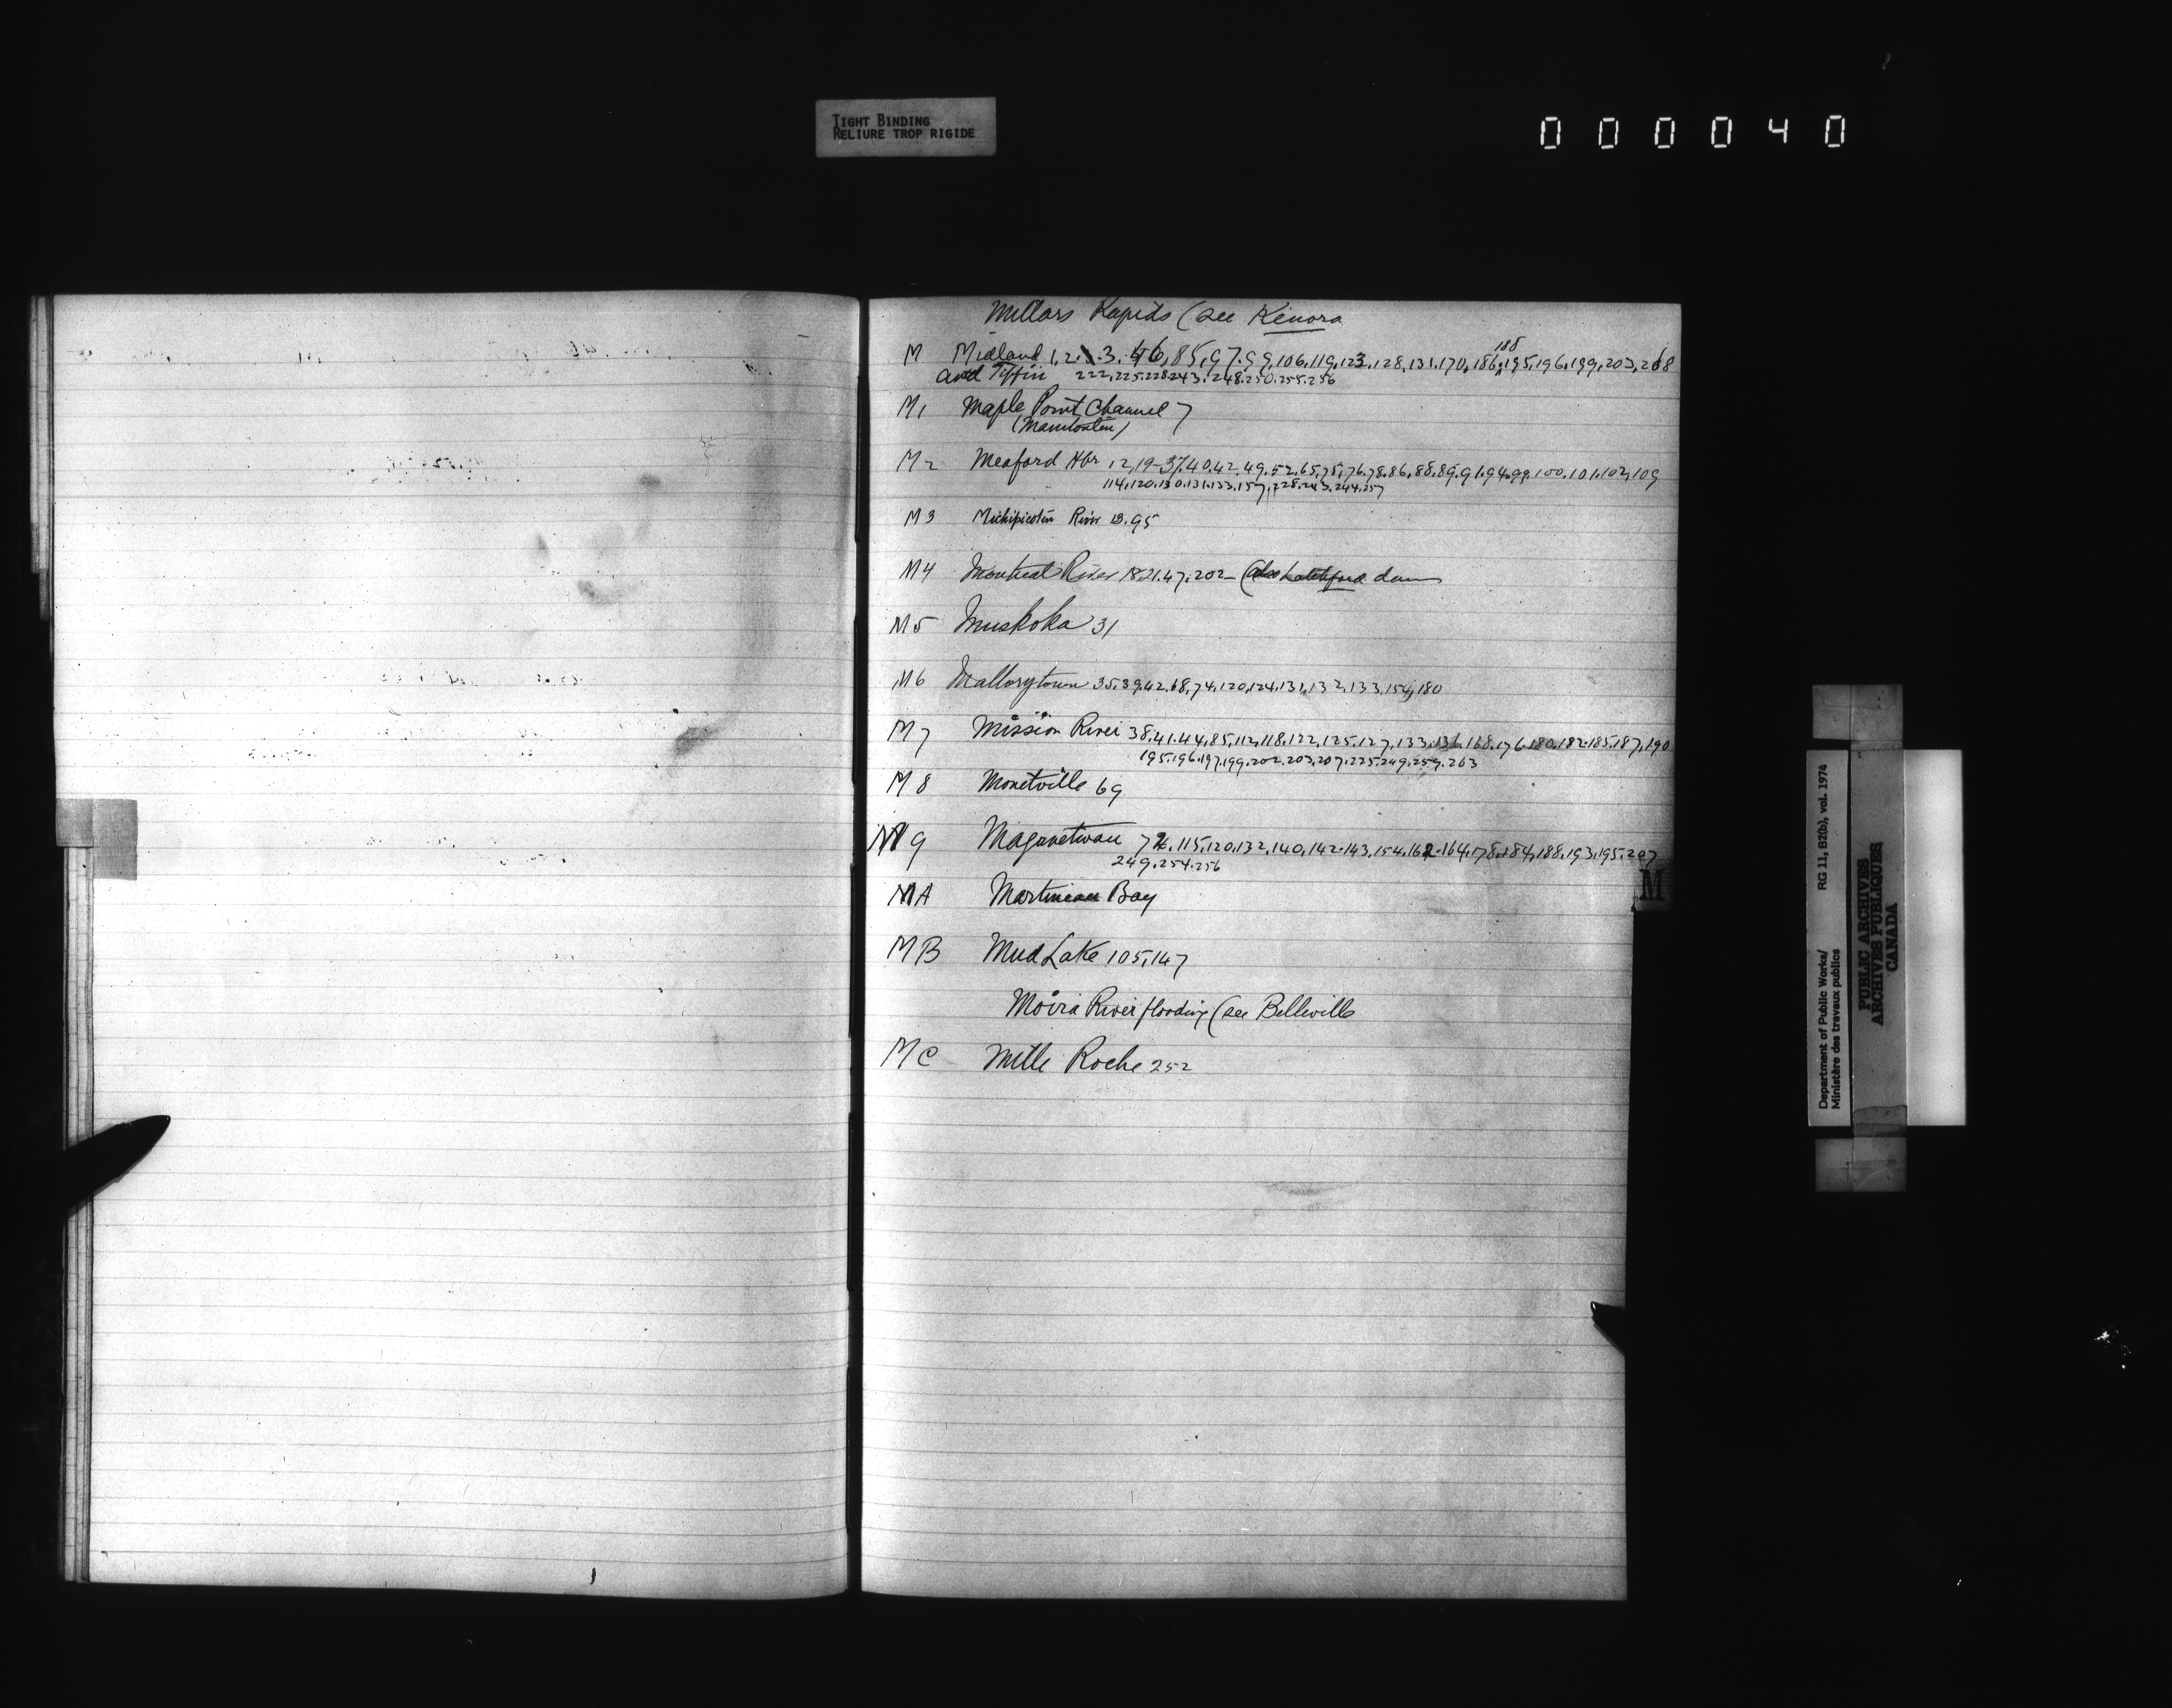 TIGHT BINDING
RELIURE TROP RIGIDE
000040
Millars Rapids (see Kenora
188
M Midland 1,2,3,46,85,97,99,106,119,123,128,131,170,186,195,196,199,203,268
and Tiffin 222,225,228,243,248,250,255,256
M1 Maple Point Channel 7
(Manitoulin)
M2 Meaford Hbr 12,19-37,40,42,49,52,65,75,76,78,86,88,89,91,94,99,100,101,102,109
114,120,130,131,133,157,228,243,244,257
M3 Michipicoten River 13.95
M4 Montreal River 18,21,47,202 (also Latchford dam
M5 Muskoka 31
M6 Mallorytown 35,39,42,68,74,120,124,131,132,133,154,180
M7 Mission River 38,41,44,85,112,118,122,125,127,133,136,168,176,180,182-185,187,190
195,196,197,199,202,203,207,225,249,259,263
M8 Monetville 69
M9 Maganetwan 115,120,132,140,142-143,154,162-164,178,184,188,193,195,207
249.254.256
MA Martineau Bay
MB Mud Lake 105,147
Moira River flooding (see Belleville
MC Mille Roche 252
M
Department of Public Works/ RG 11, B2(b), vol. 1974
Ministère des travaux publics
PUBLIC ARCHIVES
ARCHIVES PUBLIQUES
CANADA